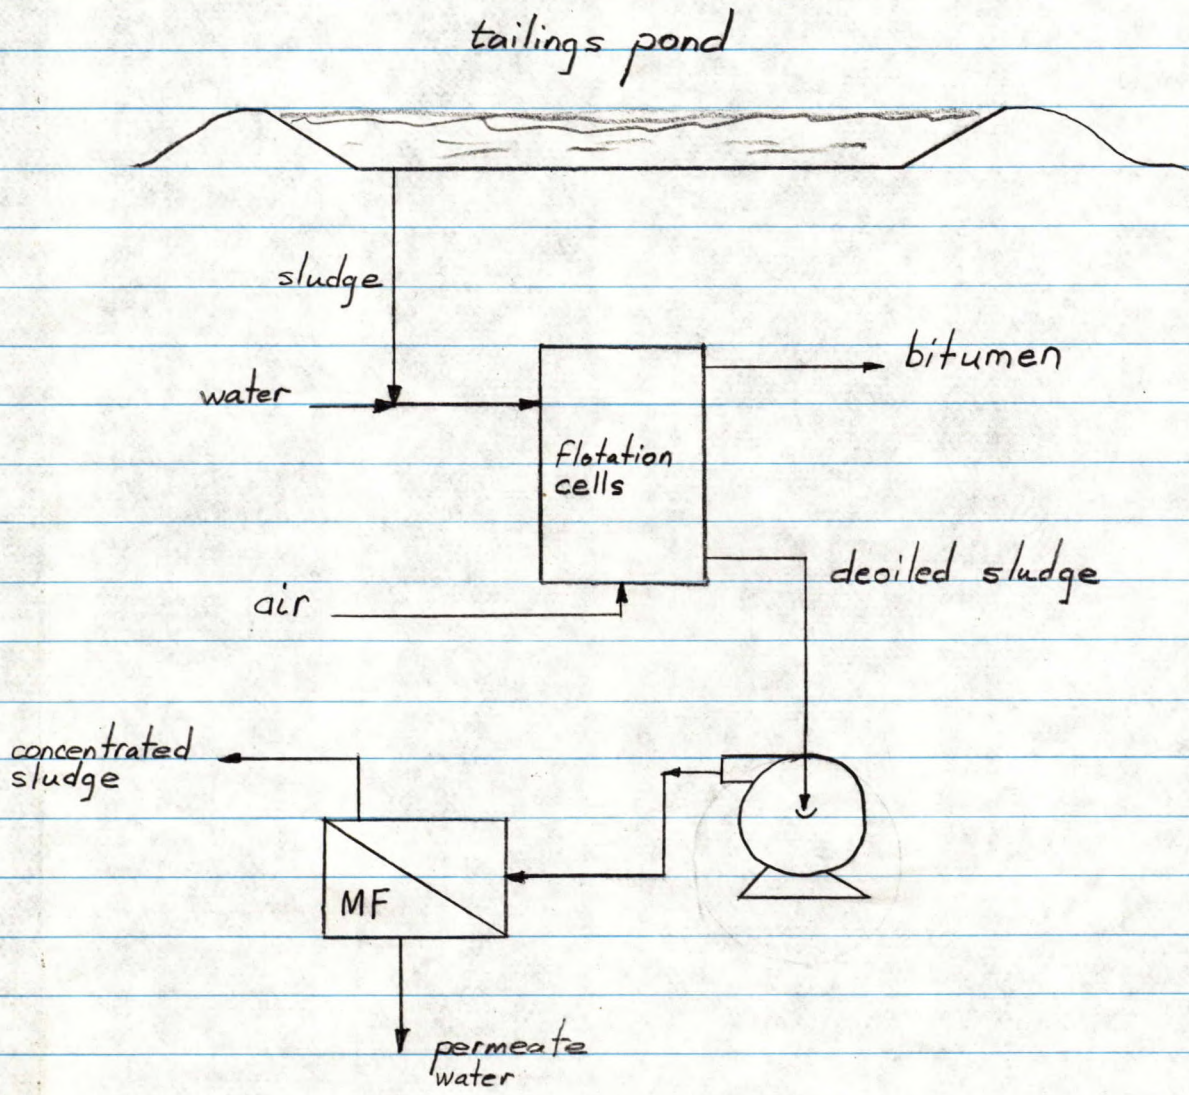 tailings pond
sludge
water
bitumen
flotation
cells
deoiled sludge
air
concentrated
sludge
MF
permeate
water